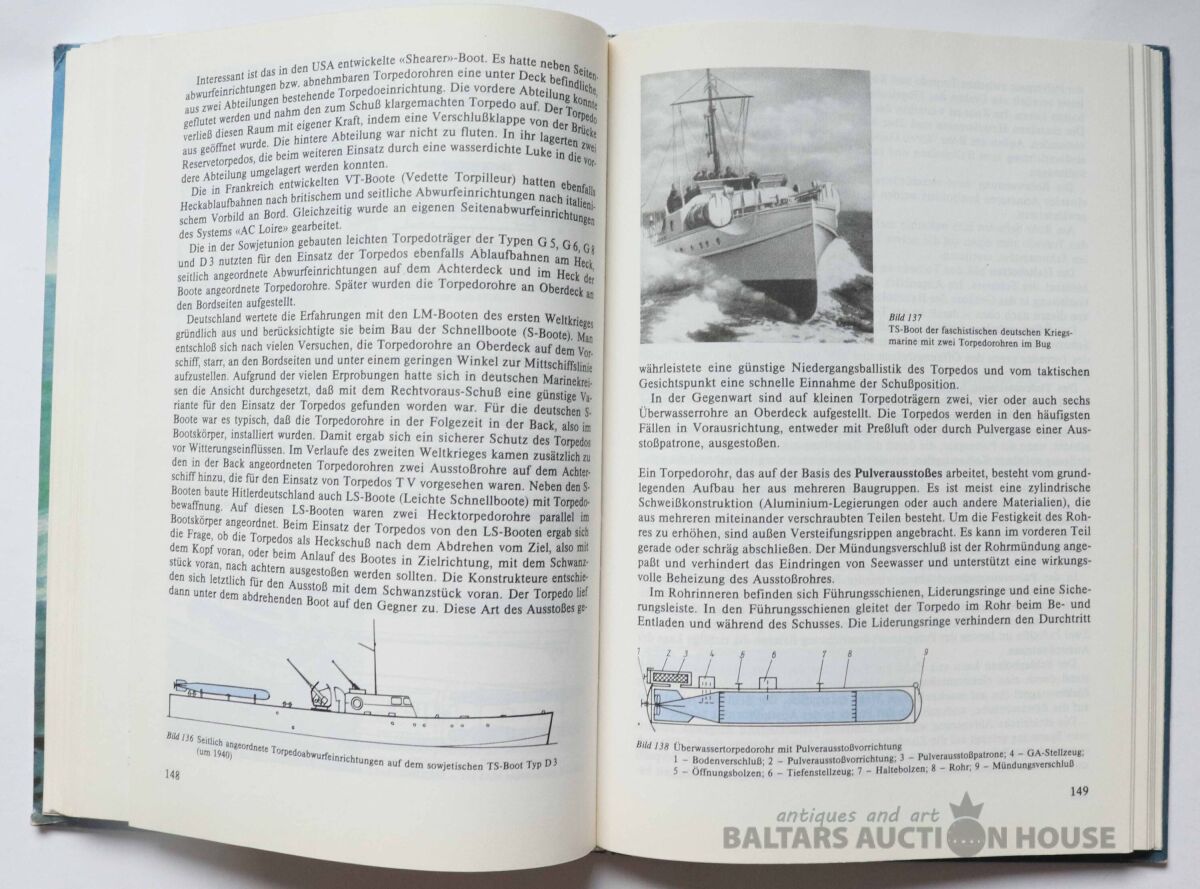 Interessant ist das in den USA entwickelte «Shearer»-Boot. Es hatte neben Seiten-
abwurfeinrichtungen bzw. abnehmbaren Torpedorohren eine unter Deck befindliche,
aus zwei Abteilungen bestehende Torpedoeinrichtung. Die vordere Abteilung konnte
geflutet werden und nahm den zum Schuß klargemachten Torpedo auf. Der Torpedo
verließ diesen Raum mit eigener Kraft, indem eine Verschlußklappe von der Brücke
aus geöffnet wurde. Die hintere Abteilung war nicht zu fluten. In ihr lagerten zwei
Reservetorpedos, die beim weiteren Einsatz durch eine wasserdichte Luke in die vor-
dere Abteilung umgelagert werden konnten.
Die in Frankreich entwickelten VT-Boote (Vedette Torpilleur) hatten ebenfalls
Heckablaufbahnen nach britischem und seitliche Abwurfeinrichtungen nach italieni-
schem Vorbild an Bord. Gleichzeitig wurde an eigenen Seitenabwurfeinrichtungen
des Systems «AC Loire» gearbeitet.
Die in der Sowjetunion gebauten leichten Torpedoträger der Typen G 5, G 6, G 8
und D 3 nutzten für den Einsatz der Torpedos ebenfalls Ablaufbahnen am Heck,
seitlich angeordnete Abwurfeinrichtungen auf dem Achterdeck und im Heck der
Boote angeordnete Torpedorohre. Später wurden die Torpedorohre an Oberdeck an
den Bordseiten aufgestellt.
Deutschland wertete die Erfahrungen mit den LM-Booten des ersten Weltkrieges
gründlich aus und berücksichtigte sie beim Bau der Schnellboote (S-Boote). Man
entschloß sich nach vielen Versuchen, die Torpedorohre an Oberdeck auf dem Vor-
schiff, starr, an den Bordseiten und unter einem geringen Winkel zur Mittschiffslinie
aufzustellen. Aufgrund der vielen Erprobungen hatte sich in deutschen Marinekrei-
sen die Ansicht durchgesetzt, daß mit dem Rechtvoraus-Schuß eine günstige Va-
riante für den Einsatz der Torpedos gefunden worden war. Für die deutschen S-
Boote war es typisch, daß die Torpedorohre in der Folgezeit in der Back, also im
Bootskörper, installiert wurden. Damit ergab sich ein sicherer Schutz des Torpedos
vor Witterungseinflüssen. Im Verlaufe des zweiten Weltkrieges kamen zusätzlich zu
den in der Back angeordneten Torpedorohren zwei Ausstoßrohre auf dem Achter-
schiff hinzu, die für den Einsatz von Torpedos T V vorgesehen waren. Neben den S-
Booten baute Hitlerdeutschland auch LS-Boote (Leichte Schnellboote) mit Torpedo-
bewaffnung. Auf diesen LS-Booten waren zwei Hecktorpedorohre parallel im
Bootskörper angeordnet. Beim Einsatz der Torpedos von den LS-Booten ergab sich
die Frage, ob die Torpedos als Heckschuß nach dem Abdrehen vom Ziel, also mit
dem Kopf voran, oder beim Anlauf des Bootes in Zielrichtung, mit dem Schwanz-
stück voran, nach achtern ausgestoßen werden sollten. Die Konstrukteure entschie-
den sich letztlich für den Ausstoß mit dem Schwanzstück voran. Der Torpedo lief
dann unter dem abdrehenden Boot auf den Gegner zu. Diese Art des Ausstoßes ge-
Bild 136 Seitlich angeordnete Torpedoabwurfeinrichtungen auf dem sowjetischen TS-Boot Typ D 3
(um 1940)
148
Bild 137
TS-Boot der faschistischen deutschen Kriegs-
marine mit zwei Torpedorohren im Bug
währleistete eine günstige Niedergangsballistik des Torpedos und vom taktischen
Gesichtspunkt eine schnelle Einnahme der Schußposition.
In der Gegenwart sind auf kleinen Torpedoträgern zwei, vier oder auch sechs
Überwasserrohre an Oberdeck aufgestellt. Die Torpedos werden in den häufigsten
Fällen in Vorausrichtung, entweder mit Preßluft oder durch Pulvergase einer Aus-
stoßpatrone, ausgestoßen.
Ein Torpedorohr, das auf der Basis des Pulverausstoßes arbeitet, besteht vom grund-
legenden Aufbau her aus mehreren Baugruppen. Es ist meist eine zylindrische
Schweißkonstruktion (Aluminium-Legierungen oder auch andere Materialien), die
aus mehreren miteinander verschraubten Teilen besteht. Um die Festigkeit des Roh-
res zu erhöhen, sind außen Versteifungsrippen angebracht. Es kann im vorderen Teil
gerade oder schräg abschließen. Der Mündungsverschluß ist der Rohrmündung ange-
paßt und verhindert das Eindringen von Seewasser und unterstützt eine wirkungs-
volle Beheizung des Ausstoßrohres.
Im Rohrinneren befinden sich Führungsschienen, Liderungsringe und eine Siche-
rungsleiste. In den Führungsschienen gleitet der Torpedo im Rohr beim Be- und
Entladen und während des Schusses. Die Liderungsringe verhindern den Durchtritt
1 2 3 4 5 6 7 8 9
Bild 138 Überwassertorpedorohr mit Pulverausstoßvorrichtung
1 – Bodenverschluß; 2 – Pulverausstoßvorrichtung; 3 – Pulverausstoßpatrone; 4 – GA-Stellzeug;
5 – Öffnungsbolzen; 6 – Tiefenstellzeug; 7 – Haltebolzen; 8 – Rohr; 9 – Mündungsverschluß
149
antiques and art
BALTARS AUCTION HOUSE